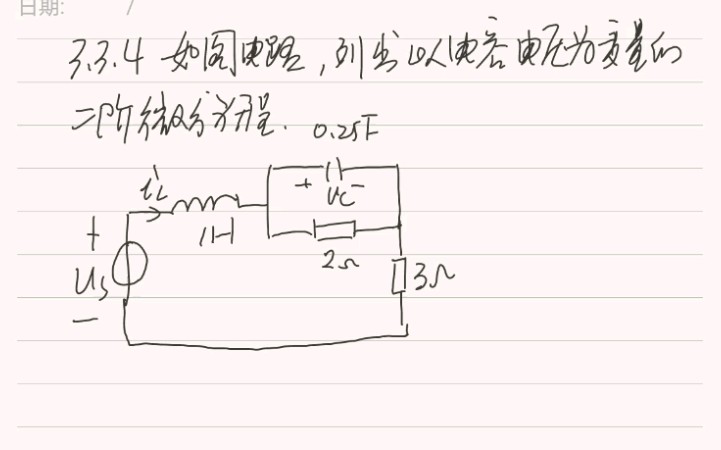 日期: /
3.3.4 如图电路,列出以电容电压为变量的
二阶微分方程.
0.25F
iL
+ uc -
1H
+
2Ω
3Ω
Us
-